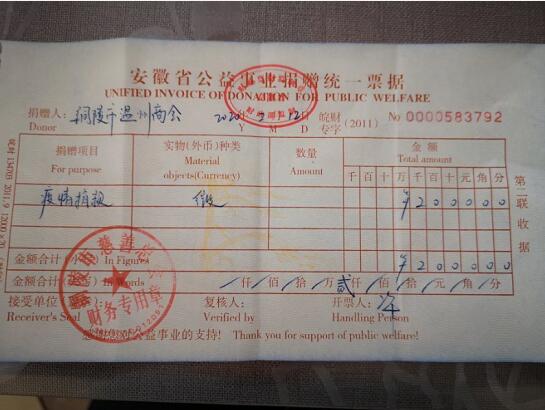 安徽省公益事业捐赠统一票据
UNIFIED INVOICE OF DONATION FOR PUBLIC WELFARE
捐赠人: 铜陵市温州商会 2020年 2 12日 皖财 (2011) No 0000583792
Donor Y M D 专字
捐赠项目 实物(外币)种类 数量 金额
For purpose Material Amount Total amount
objects(Currency) 千百十万千百十元角分
疫情捐款 ¥2000000
金额合计(小 In Figures ¥2000000
金额合计( In Words 仟佰拾万贰仟佰拾元角分
接受单位 复核人: 开票人:
Receiver's Seal Verified by Handling Person
感谢您对公益事业的支持! Thank you for support of public welfare!
第二联 收据
慈善
财务专用章